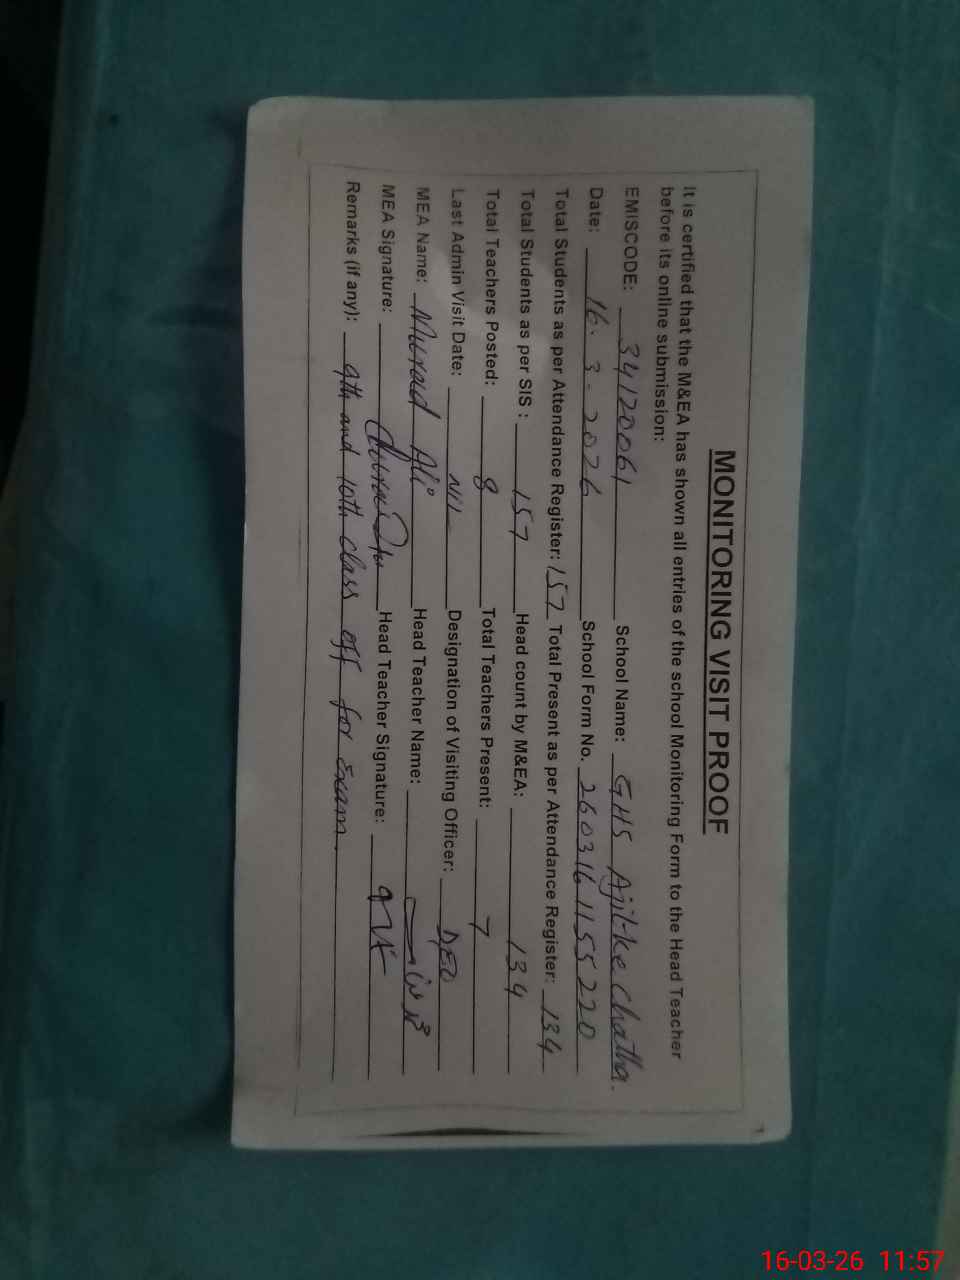 MONITORING VISIT PROOF
It is certified that the M&EA has shown all entries of the school Monitoring Form to the Head Teacher
before its online submission:
EMISCODE: 34120061 School Name: GHS Ajit-ke Chatha.
Date: 16.3.2026 School Form No. 2603161155220
Total Students as per Attendance Register: 157 Total Present as per Attendance Register: 134
Total Students as per SIS : 157 Head count by M&EA: 134
Total Teachers Posted: 8 Total Teachers Present: 7
Last Admin Visit Date: Nil Designation of Visiting Officer: DEO
MEA Name: Murad Ali Head Teacher Name:
MEA Signature: Head Teacher Signature:
Remarks (if any): 9th and 10th class off for exam.
16-03-26 11:57